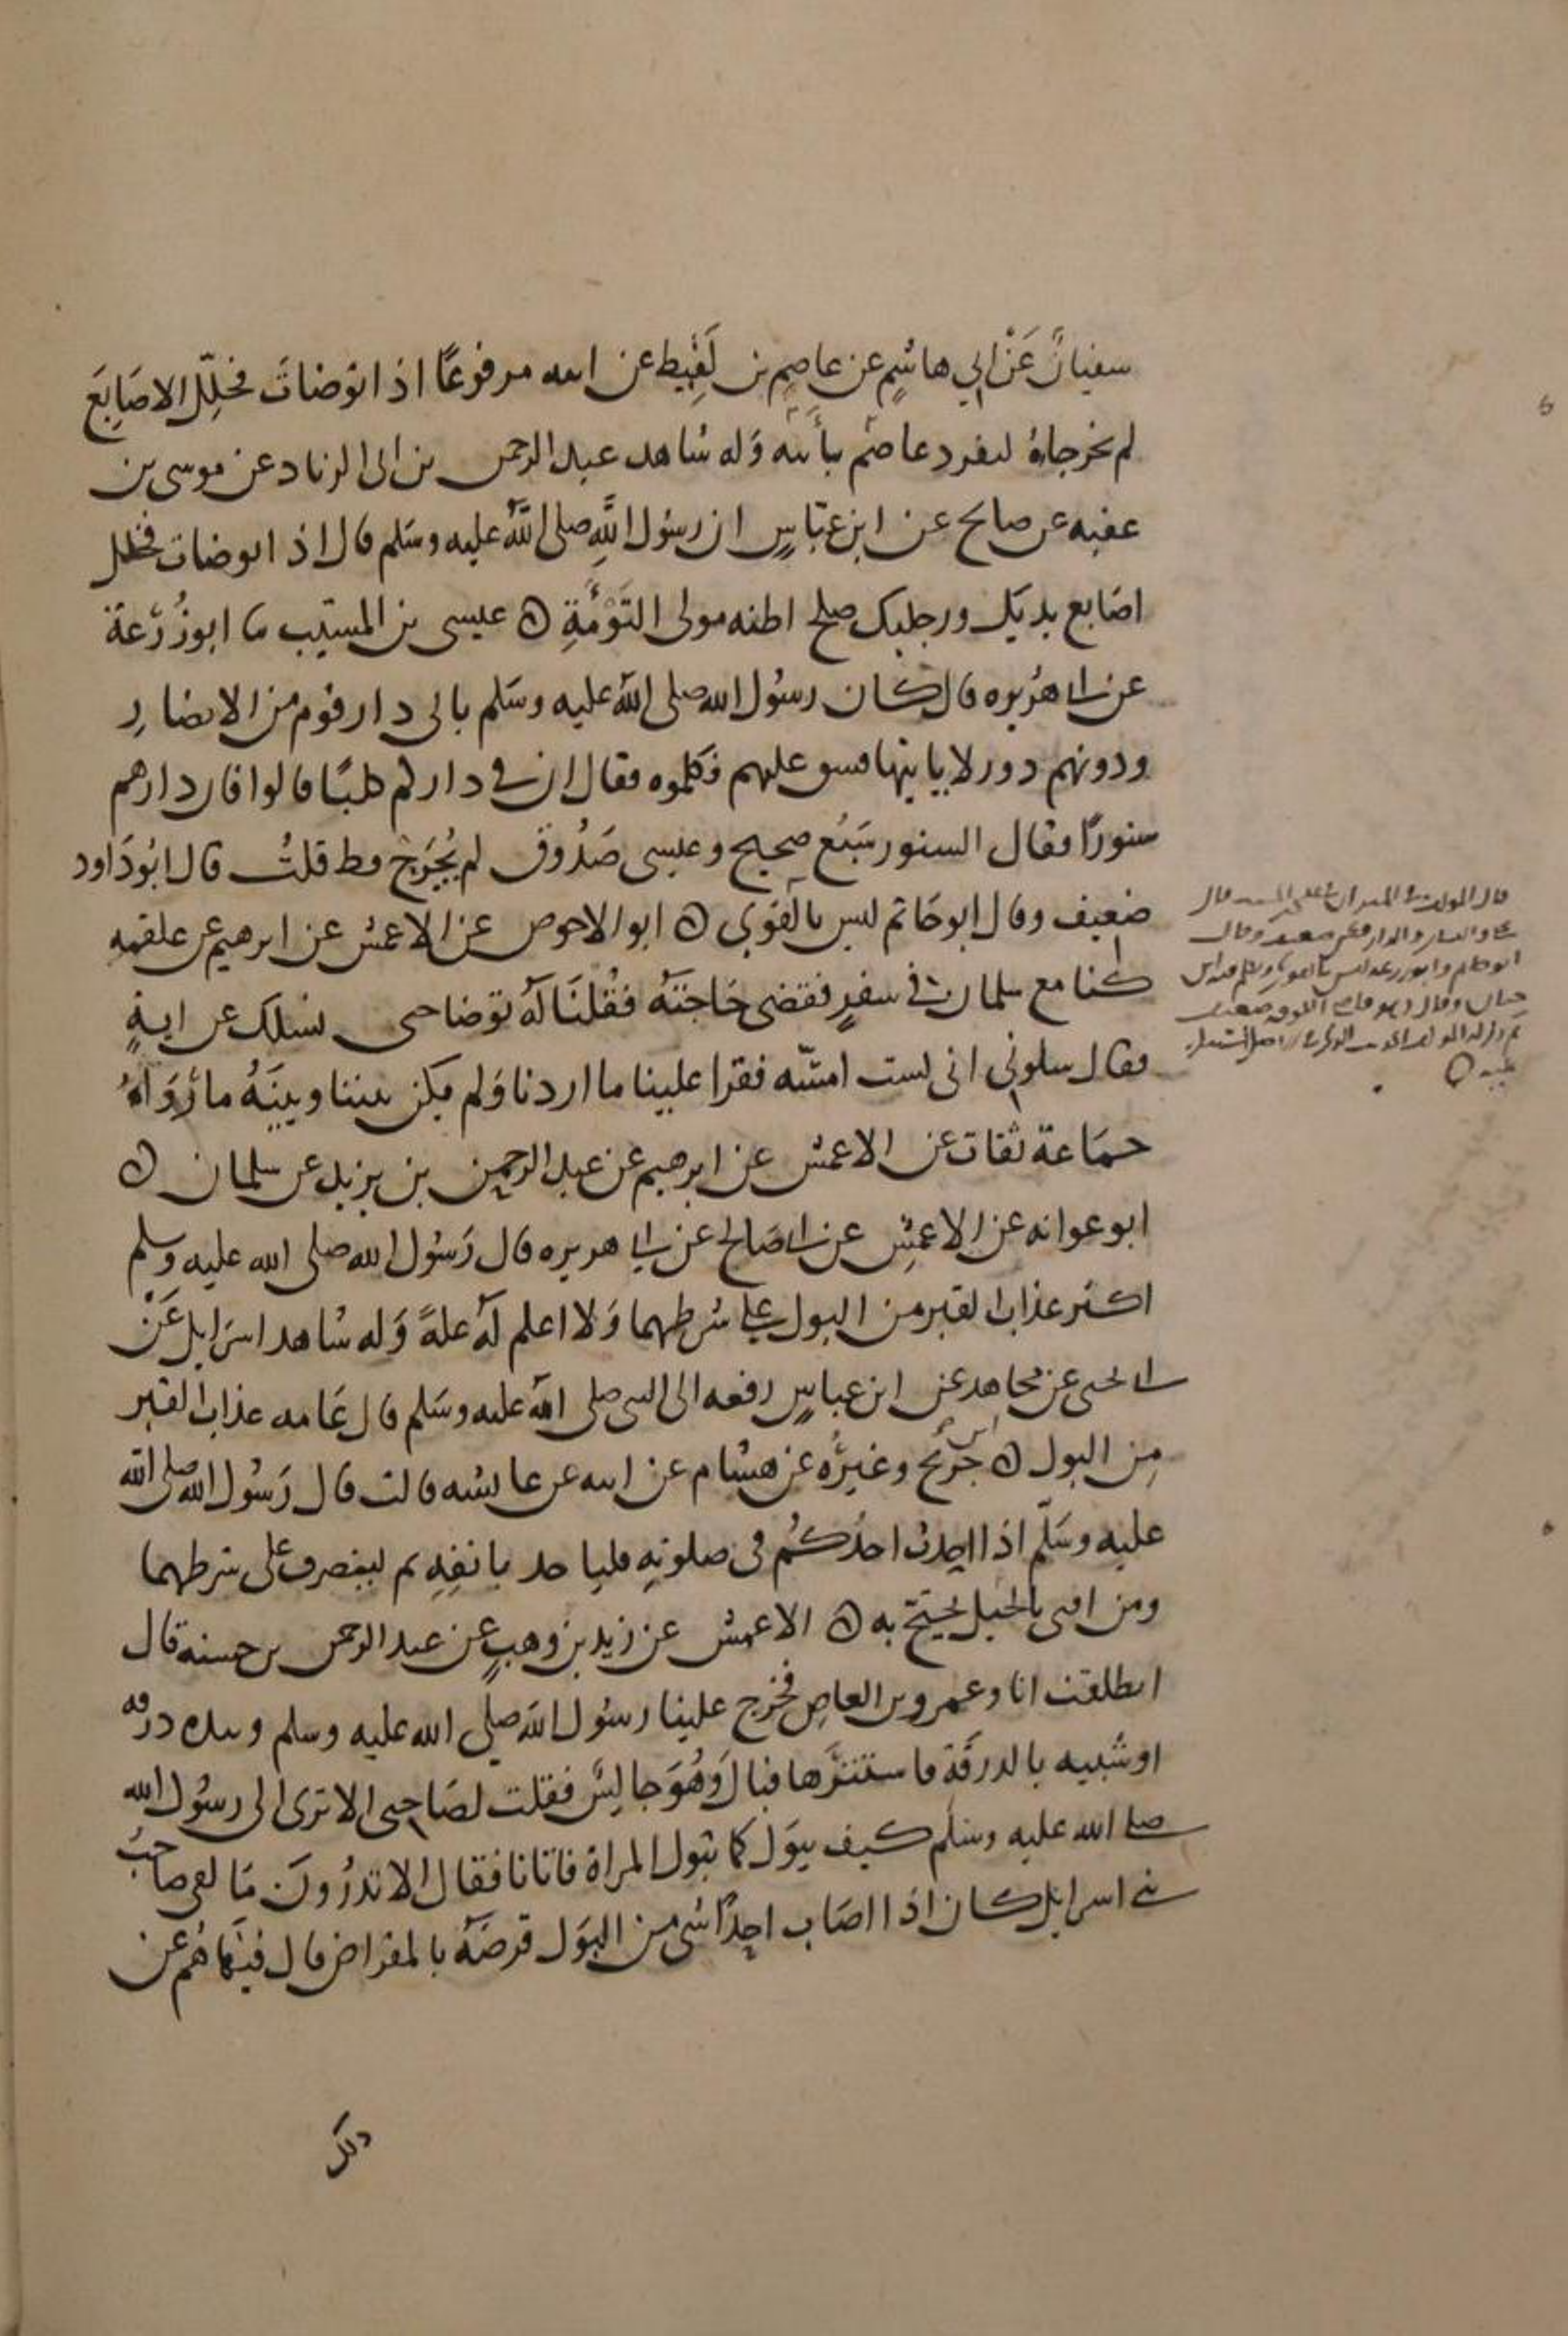 سفيان عَنْ ابي هاشمٍ عن عاصمِ بن لَقِيط عن ابيه مرفوعًا اذا توضاتَ فخلِّل الاصَابِعَ
لم يخرجاهُ لتفرد عاصم بأبيه وَله شاهد عبد الرحمن بن ابى الزناد عن موسى بن
عقبه عن صالح عن ابن عبّاسٍ ان رسُول اللهِ صلى اللهُ عليه وسَلم قال اذا توضات فخلل
اصَابع يديك ورجليك صلح اظنه مولى التَوْمَةِ ه عيسى بن المسيّب ثنا ابوزُرْعَة
عن ابي هُريره قال كان رسُول الله صلى اللهُ عليه وسَلم ياتى دار قوم من الانصَارِ
ودونهم دور لا ياتيها فشق عليهم فكلموه فقال ان في داركم كلبًا قالوا فان دارهم
سنورًا فقال السنور سَبُع صحيح وعيسى صَدُوق لم يُجَرَح قط قلتُ قال ابُو دَاود
ضعيف وقال ابو حَاتم ليس بالقوي ه ابو الاحوص عن الاعمش عن ابرهيم عن علقمه
كنا مع سلمان في سفرٍ فقضى حَاجتَهُ فقُلنَا لَهُ توضا حتى نسلك عن ايةٍ
فقال سلوني انى لست امسّه فقرا علينا ما اردنا وَلم يكن بيننا وبينَهُ ما رَوَاهُ
جمَاعة ثقات عن الاعمش عن ابرهيم عن عبد الرحمن بن يزيد عن سلمان ه
ابو عوانه عن الاعمش عن ابي صَالح عن ابي هريره قال رَسُول الله صلى الله عليه وسلم
اكثر عذاب القبر من البول على شرطهما وَلا اعلم لَهُ علةً وَله شاهد اسرَايل عَنْ
ابي يحيى عن مجاهد عن ابن عباسٍ رفعه الى النبي صلى الله عليه وسَلم قال عَامه عذاب القبر
مِن البول ه ابن جُرَيْج وغيرُه عن هشام عن ابيه عن عايشه قالت قال رَسُول الله صلى الله
عليه وسَلّم اذا احدث احدُكُم فى صلوتِه فلياخد بانفِهِ ثم لينصرف على شرطهما
ومن افتى بالحيل يحتج به ه الاعمش عن زيد بن وهبٍ عن عبد الرحمن بن حسنة قال
انطلقت انا وعمرو بن العاصِ فخرج علينا رسُول الله صلى الله عليه وسلم وبيده درقه
او شبيه بالدرقَة فاستتَر بها فبال وَهُوَ جالسٌ فقلت لصَاحبى الا ترى الى رسُول الله
صلى الله عليه وسَلم كيف يبَول كما تبول المراة فاتانا فقال الا تدرُونَ مَا لقى صاحبُ
بني اسرايل كان اذا اصَاب احدًا شى من البَول قرضَهُ بالمقراض قال فنهَاهُم عن
ذلك
قال المولف في الميزان عيسى بن المسيب قال
يحيى والنساي والدارقطني ضعيف وقال
ابو حاتم وابو زرعه ليس بالقوي وتكلم فيه ابن
حبان وقال ابو داود قاضي الكوفه ضعيف